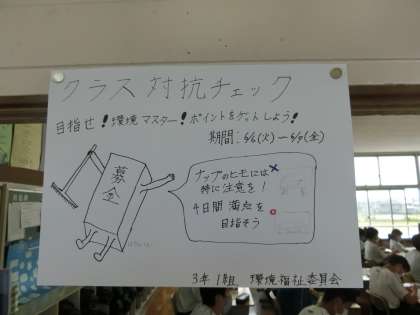 クラス対抗チェック
目指せ!環境マスター!ポイントをゲットしよう!
期間:5/6(火)-5/9(金)
募金
ナップのヒモには
特に注意を!
4日間満点を
目指そう
3年1組 環境福祉委員会